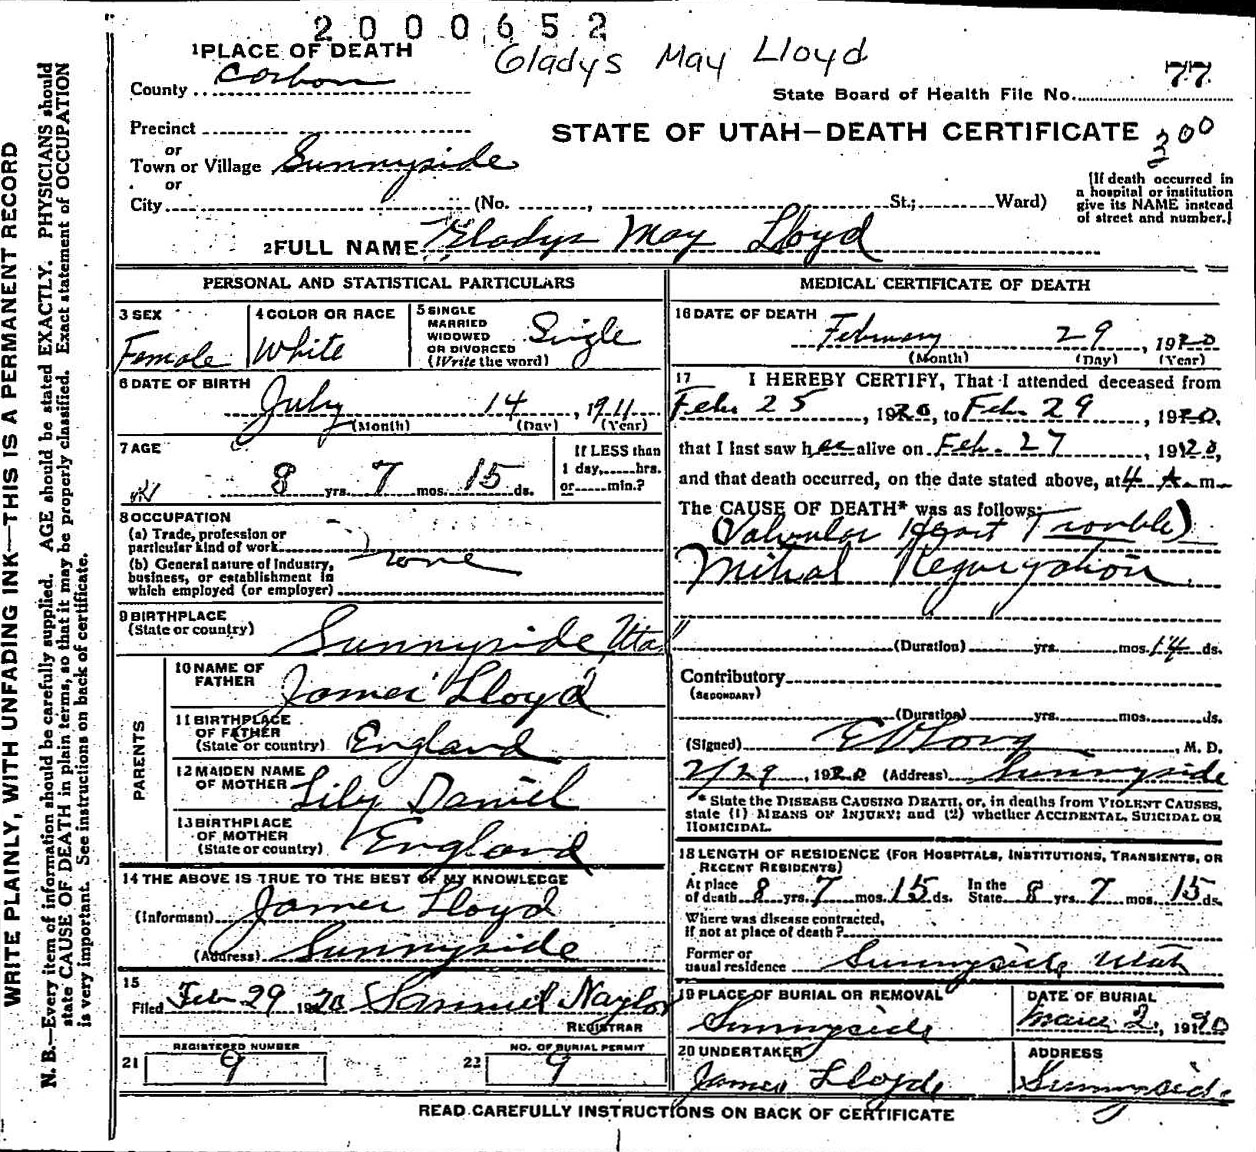 2000652
Gladys May Lloyd
1 PLACE OF DEATH
County Carbon
State Board of Health File No. 77
Precinct
or
Town or Village Sunnyside
or
City (No. , St.; Ward)
STATE OF UTAH—DEATH CERTIFICATE 300
[If death occurred in
a hospital or institution
give its NAME instead
of street and number.]
2 FULL NAME Gladys May Lloyd
PERSONAL AND STATISTICAL PARTICULARS
3 SEX
Female
4 COLOR OR RACE
White
5 SINGLE
MARRIED
WIDOWED
OR DIVORCED
(Write the word)
Single
6 DATE OF BIRTH
July 14, 1911
(Month) (Day) (Year)
7 AGE
8 yrs. 7 mos. 15 ds.
If LESS than
1 day, hrs.
or min.?
8 OCCUPATION
(a) Trade, profession or
particular kind of work
none
(b) General nature of Industry,
business, or establishment in
which employed (or employer)
9 BIRTHPLACE
(State or country) Sunnyside, Utah
PARENTS
10 NAME OF
FATHER James Lloyd
11 BIRTHPLACE
OF FATHER
(State or country) England
12 MAIDEN NAME
OF MOTHER Lily Daniel
13 BIRTHPLACE
OF MOTHER
(State or country) England
14 THE ABOVE IS TRUE TO THE BEST OF MY KNOWLEDGE
(Informant) James Lloyd
(Address) Sunnyside
15
Filed Feb 29 1920 Samuel Naylor
REGISTRAR
21 REGISTERED NUMBER
9
22 NO. OF BURIAL PERMIT
9
MEDICAL CERTIFICATE OF DEATH
16 DATE OF DEATH
February 29, 1920
(Month) (Day) (Year)
17 I HEREBY CERTIFY, That I attended deceased from
Feb. 25, 1920, to Feb. 29, 1920,
that I last saw her alive on Feb. 27, 1920,
and that death occurred, on the date stated above, at 4 A. m.
The CAUSE OF DEATH* was as follows:
(Valvular Heart Trouble)
Mitral Regurgation
(Duration) yrs. mos. 14 ds.
Contributory
(SECONDARY)
(Duration) yrs. mos. ds.
(Signed) M. D.
2/29, 1920 (Address) Sunnyside
* State the DISEASE CAUSING DEATH, or, in deaths from VIOLENT CAUSES,
state (1) MEANS OF INJURY; and (2) whether ACCIDENTAL, SUICIDAL OR
HOMICIDAL.
18 LENGTH OF RESIDENCE (FOR HOSPITALS, INSTITUTIONS, TRANSIENTS, OR
RECENT RESIDENTS)
At place
of death 8 yrs. 7 mos. 15 ds.
In the
State 8 yrs. 7 mos. 15 ds.
Where was disease contracted,
if not at place of death?
Former or
usual residence Sunnyside Utah
19 PLACE OF BURIAL OR REMOVAL
Sunnyside
DATE OF BURIAL
March 2, 1920
20 UNDERTAKER
James Lloyd
ADDRESS
Sunnyside
READ CAREFULLY INSTRUCTIONS ON BACK OF CERTIFICATE
WRITE PLAINLY, WITH UNFADING INK—THIS IS A PERMANENT RECORD
N. B.—Every item of information should be carefully supplied. AGE should be stated EXACTLY. PHYSICIANS should
state CAUSE OF DEATH in plain terms, so that it may be properly classified. Exact statement of OCCUPATION
is very important. See instructions on back of certificate.